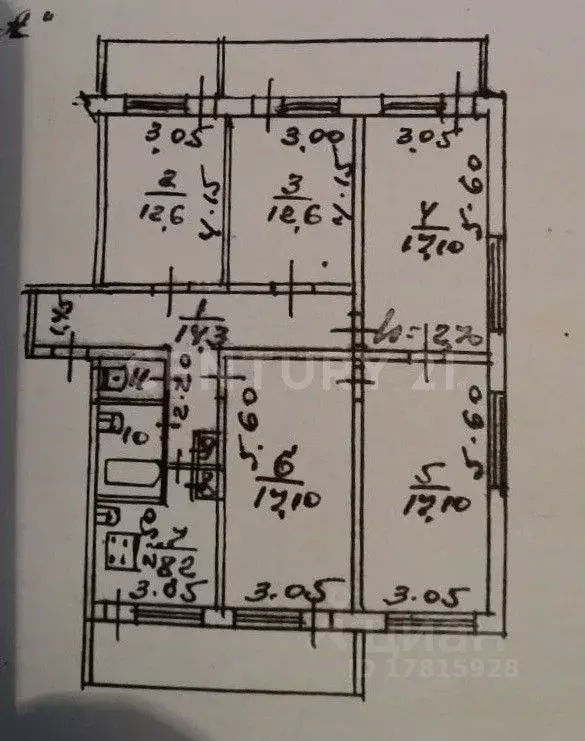 3.05
3.00
3.05
2
12.6
4.15
3
12.6
4.15
4
17.10
5.60
1.45
1
14.3
h=2.70
CENTURY 21
11
2.20
10
5.60
6
17.10
5
17.10
5.60
9
8
7
8.2
3.05
3.05
3.05
циан
ID 17815928